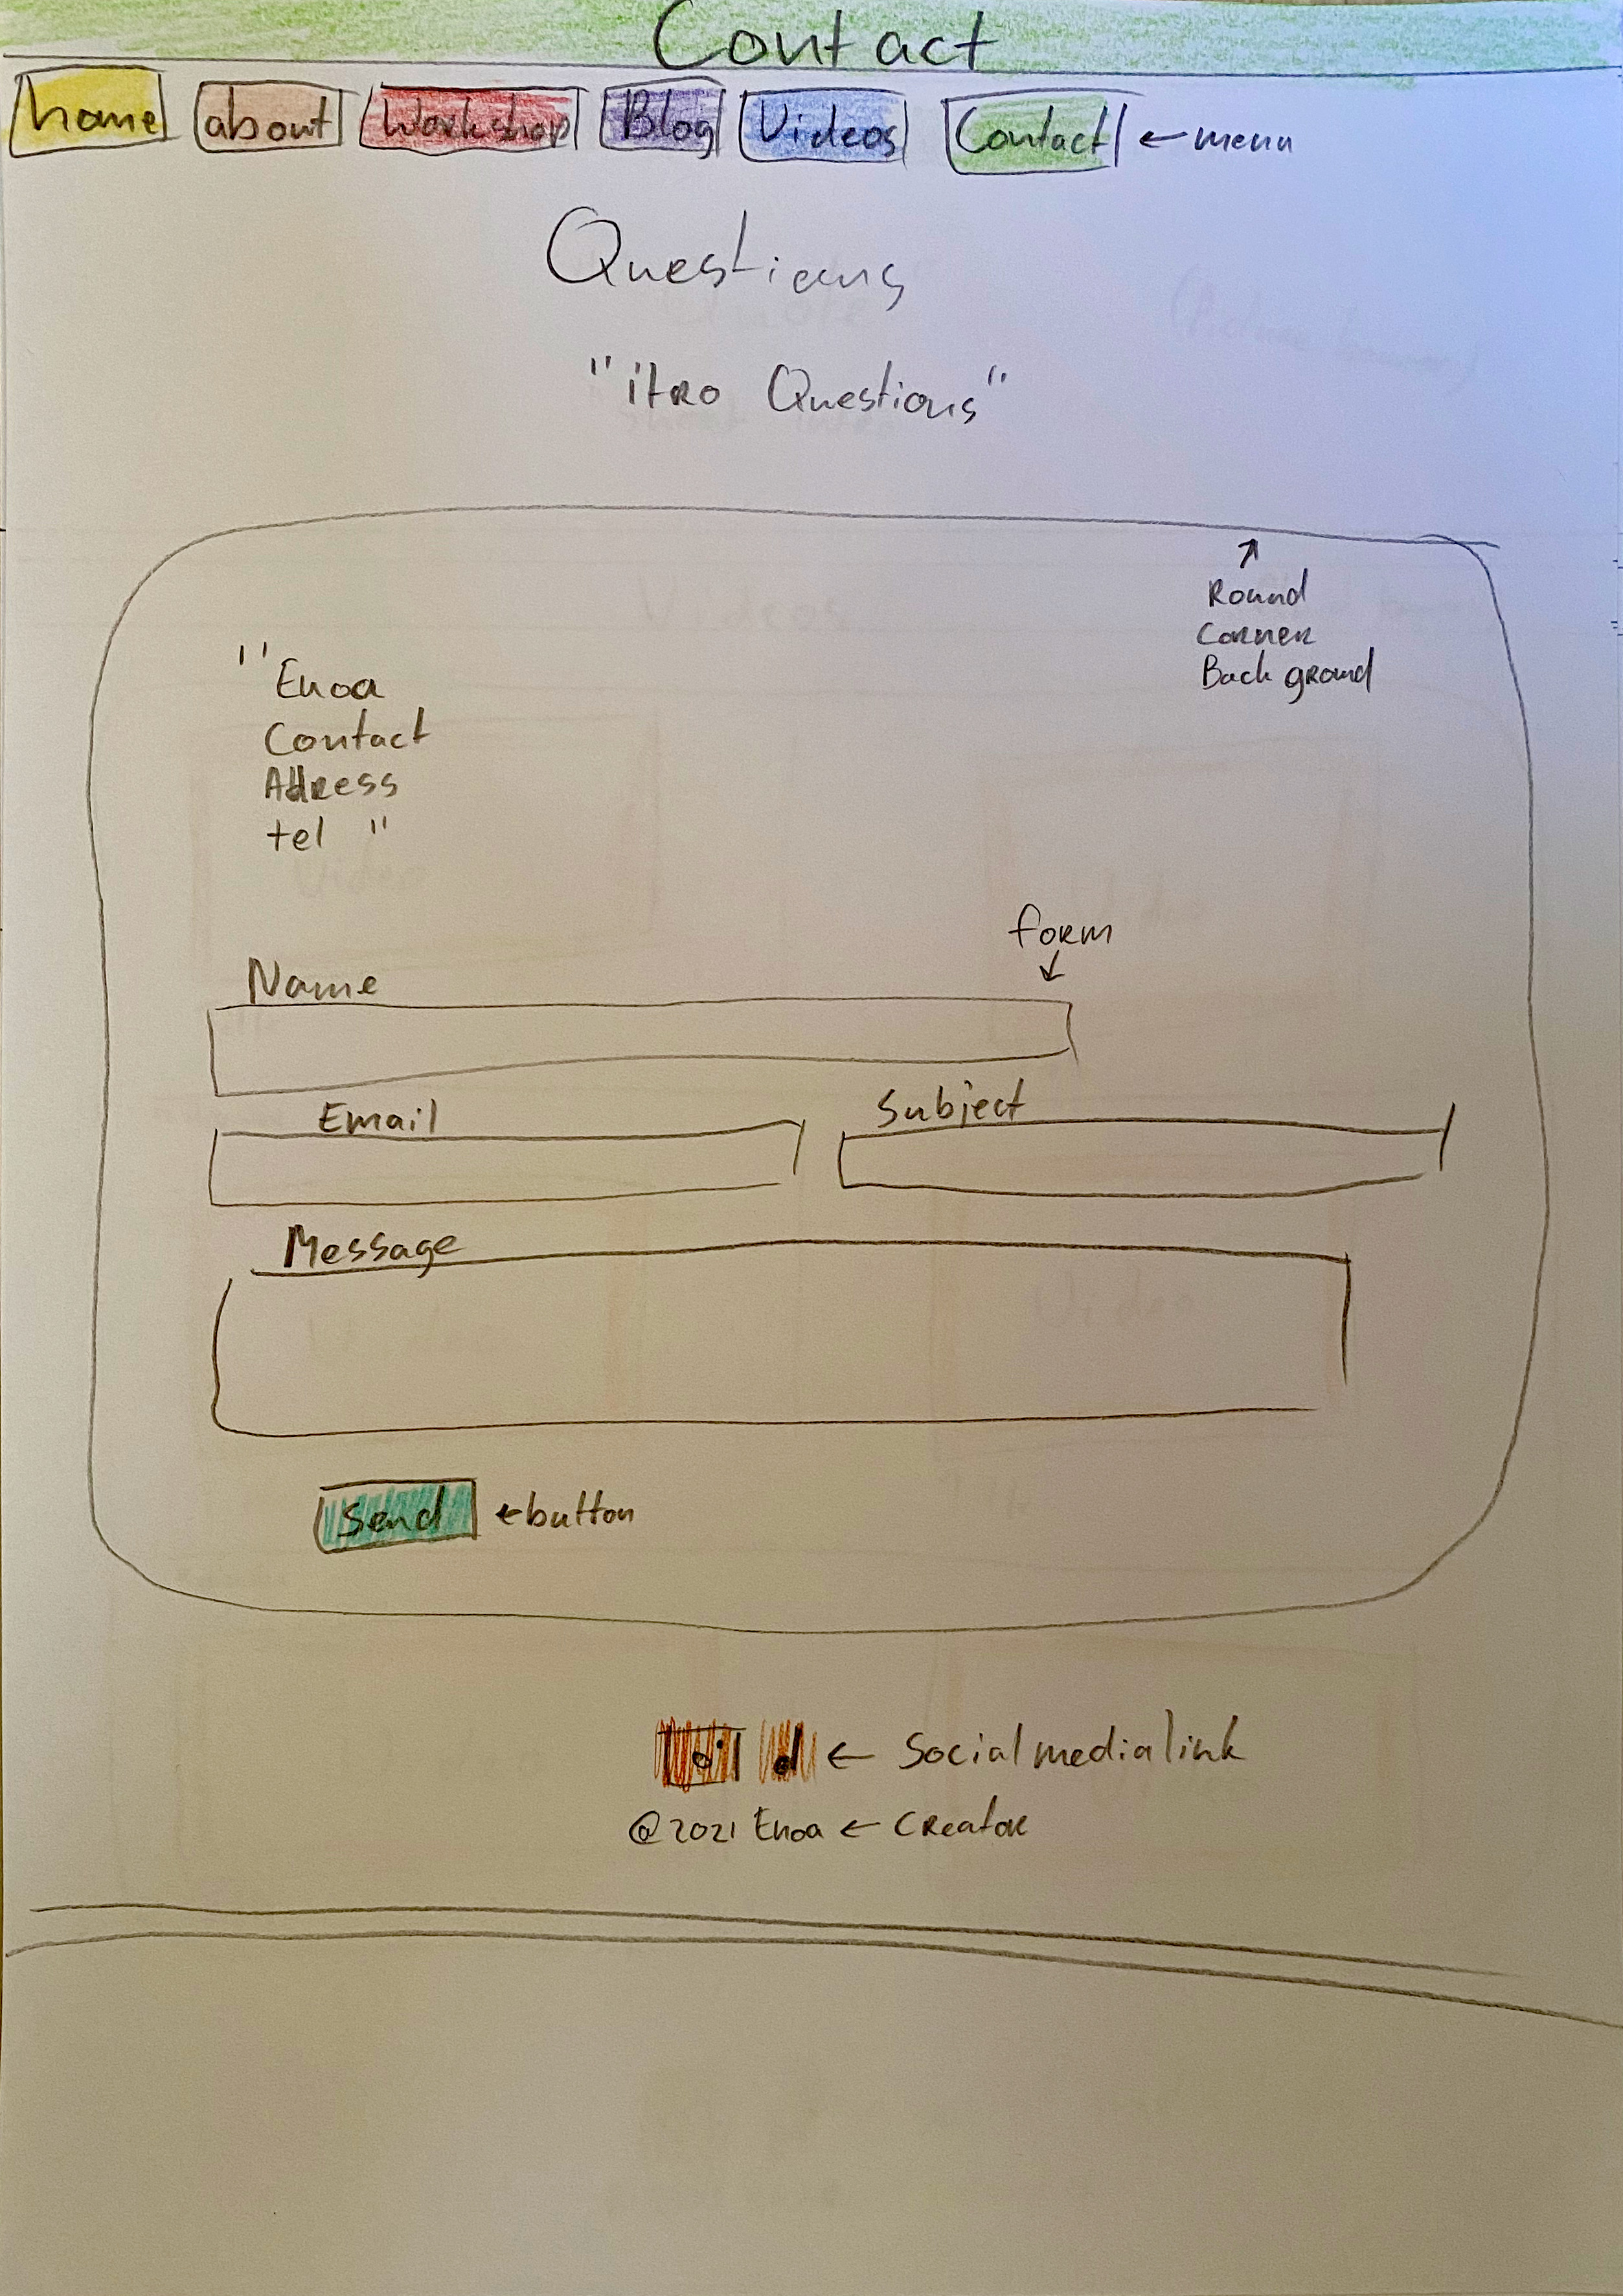 Contact
home about Workshop Blog Videos Contact ← menu
Questions
"itro Questions"
↑
Round
Corner
Back ground
"Enoa
Contact
Adress
tel "
form
↓
Name
Email Subject
Message
Send ← button
← Social media link
@2021 Enoa ← Creator